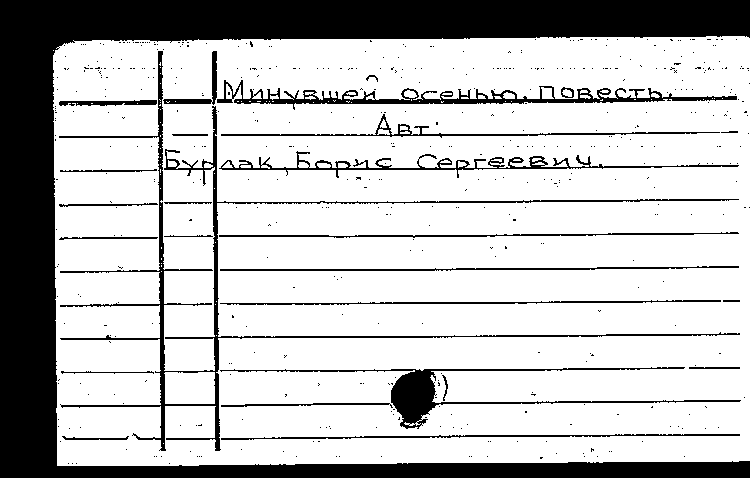 Минувшей осенью. Повесть.
Авт:
Бурлак, Борис Сергеевич.